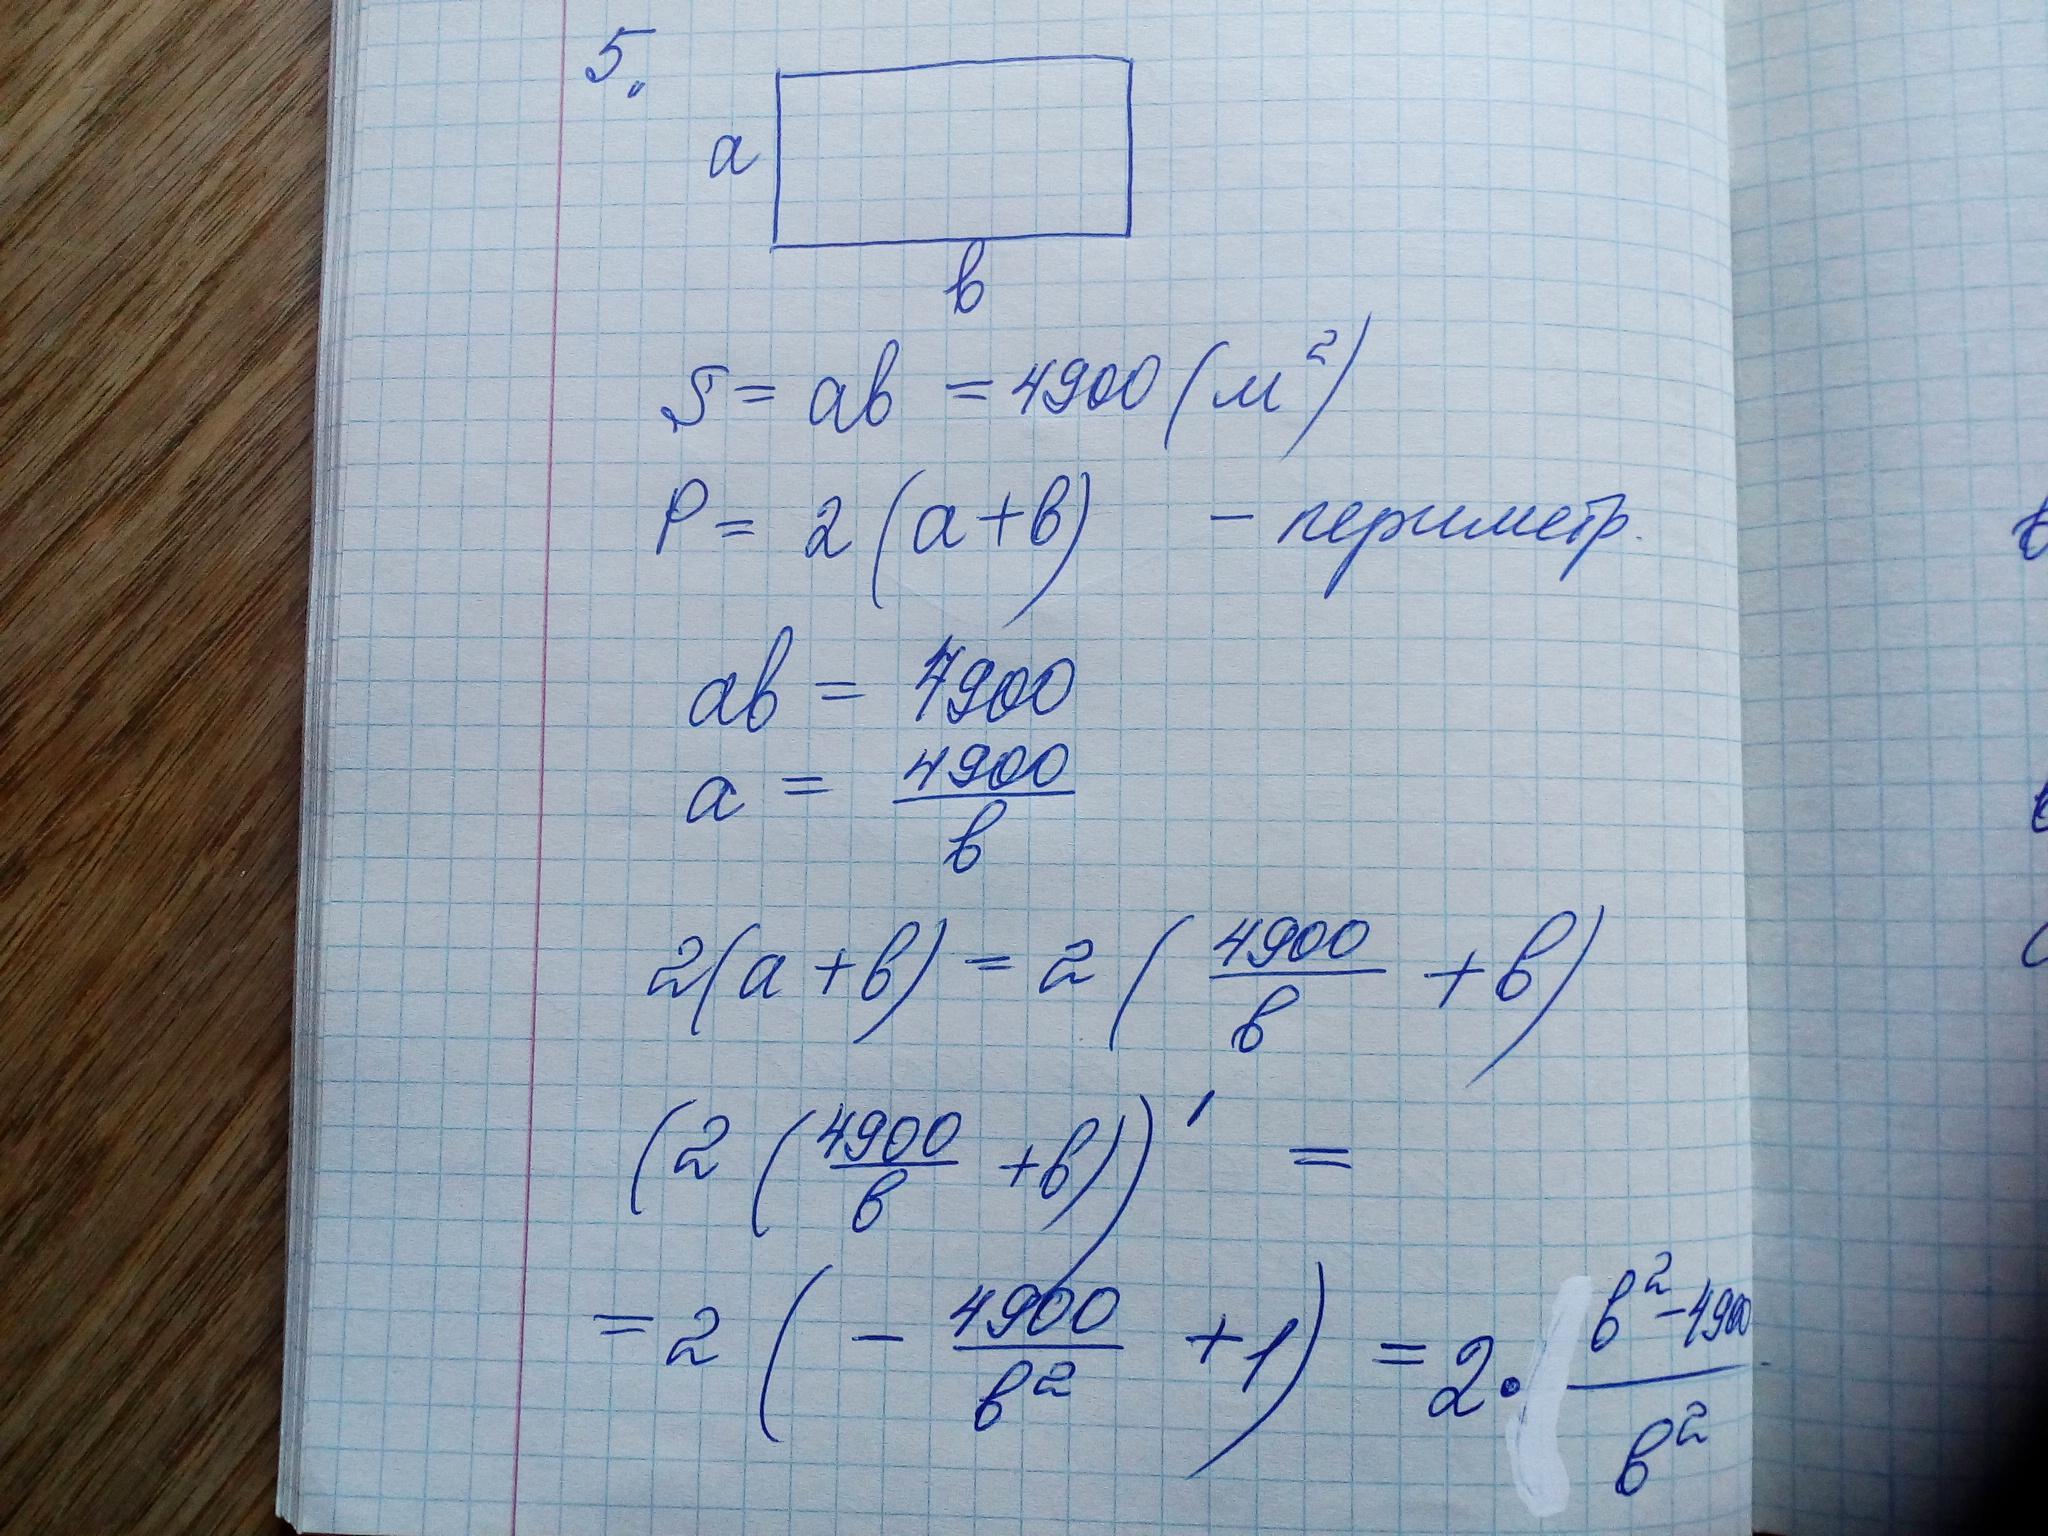 5.
a
b
S = ab = 4900 (м²)
P = 2 (a+b) - периметр.
ab = 4900
a = 4900/b
2(a+b) = 2 (4900/b + b)
(2 (4900/b + b))' =
= 2 (- 4900/b² + 1) = 2 · b² - 4900/b²